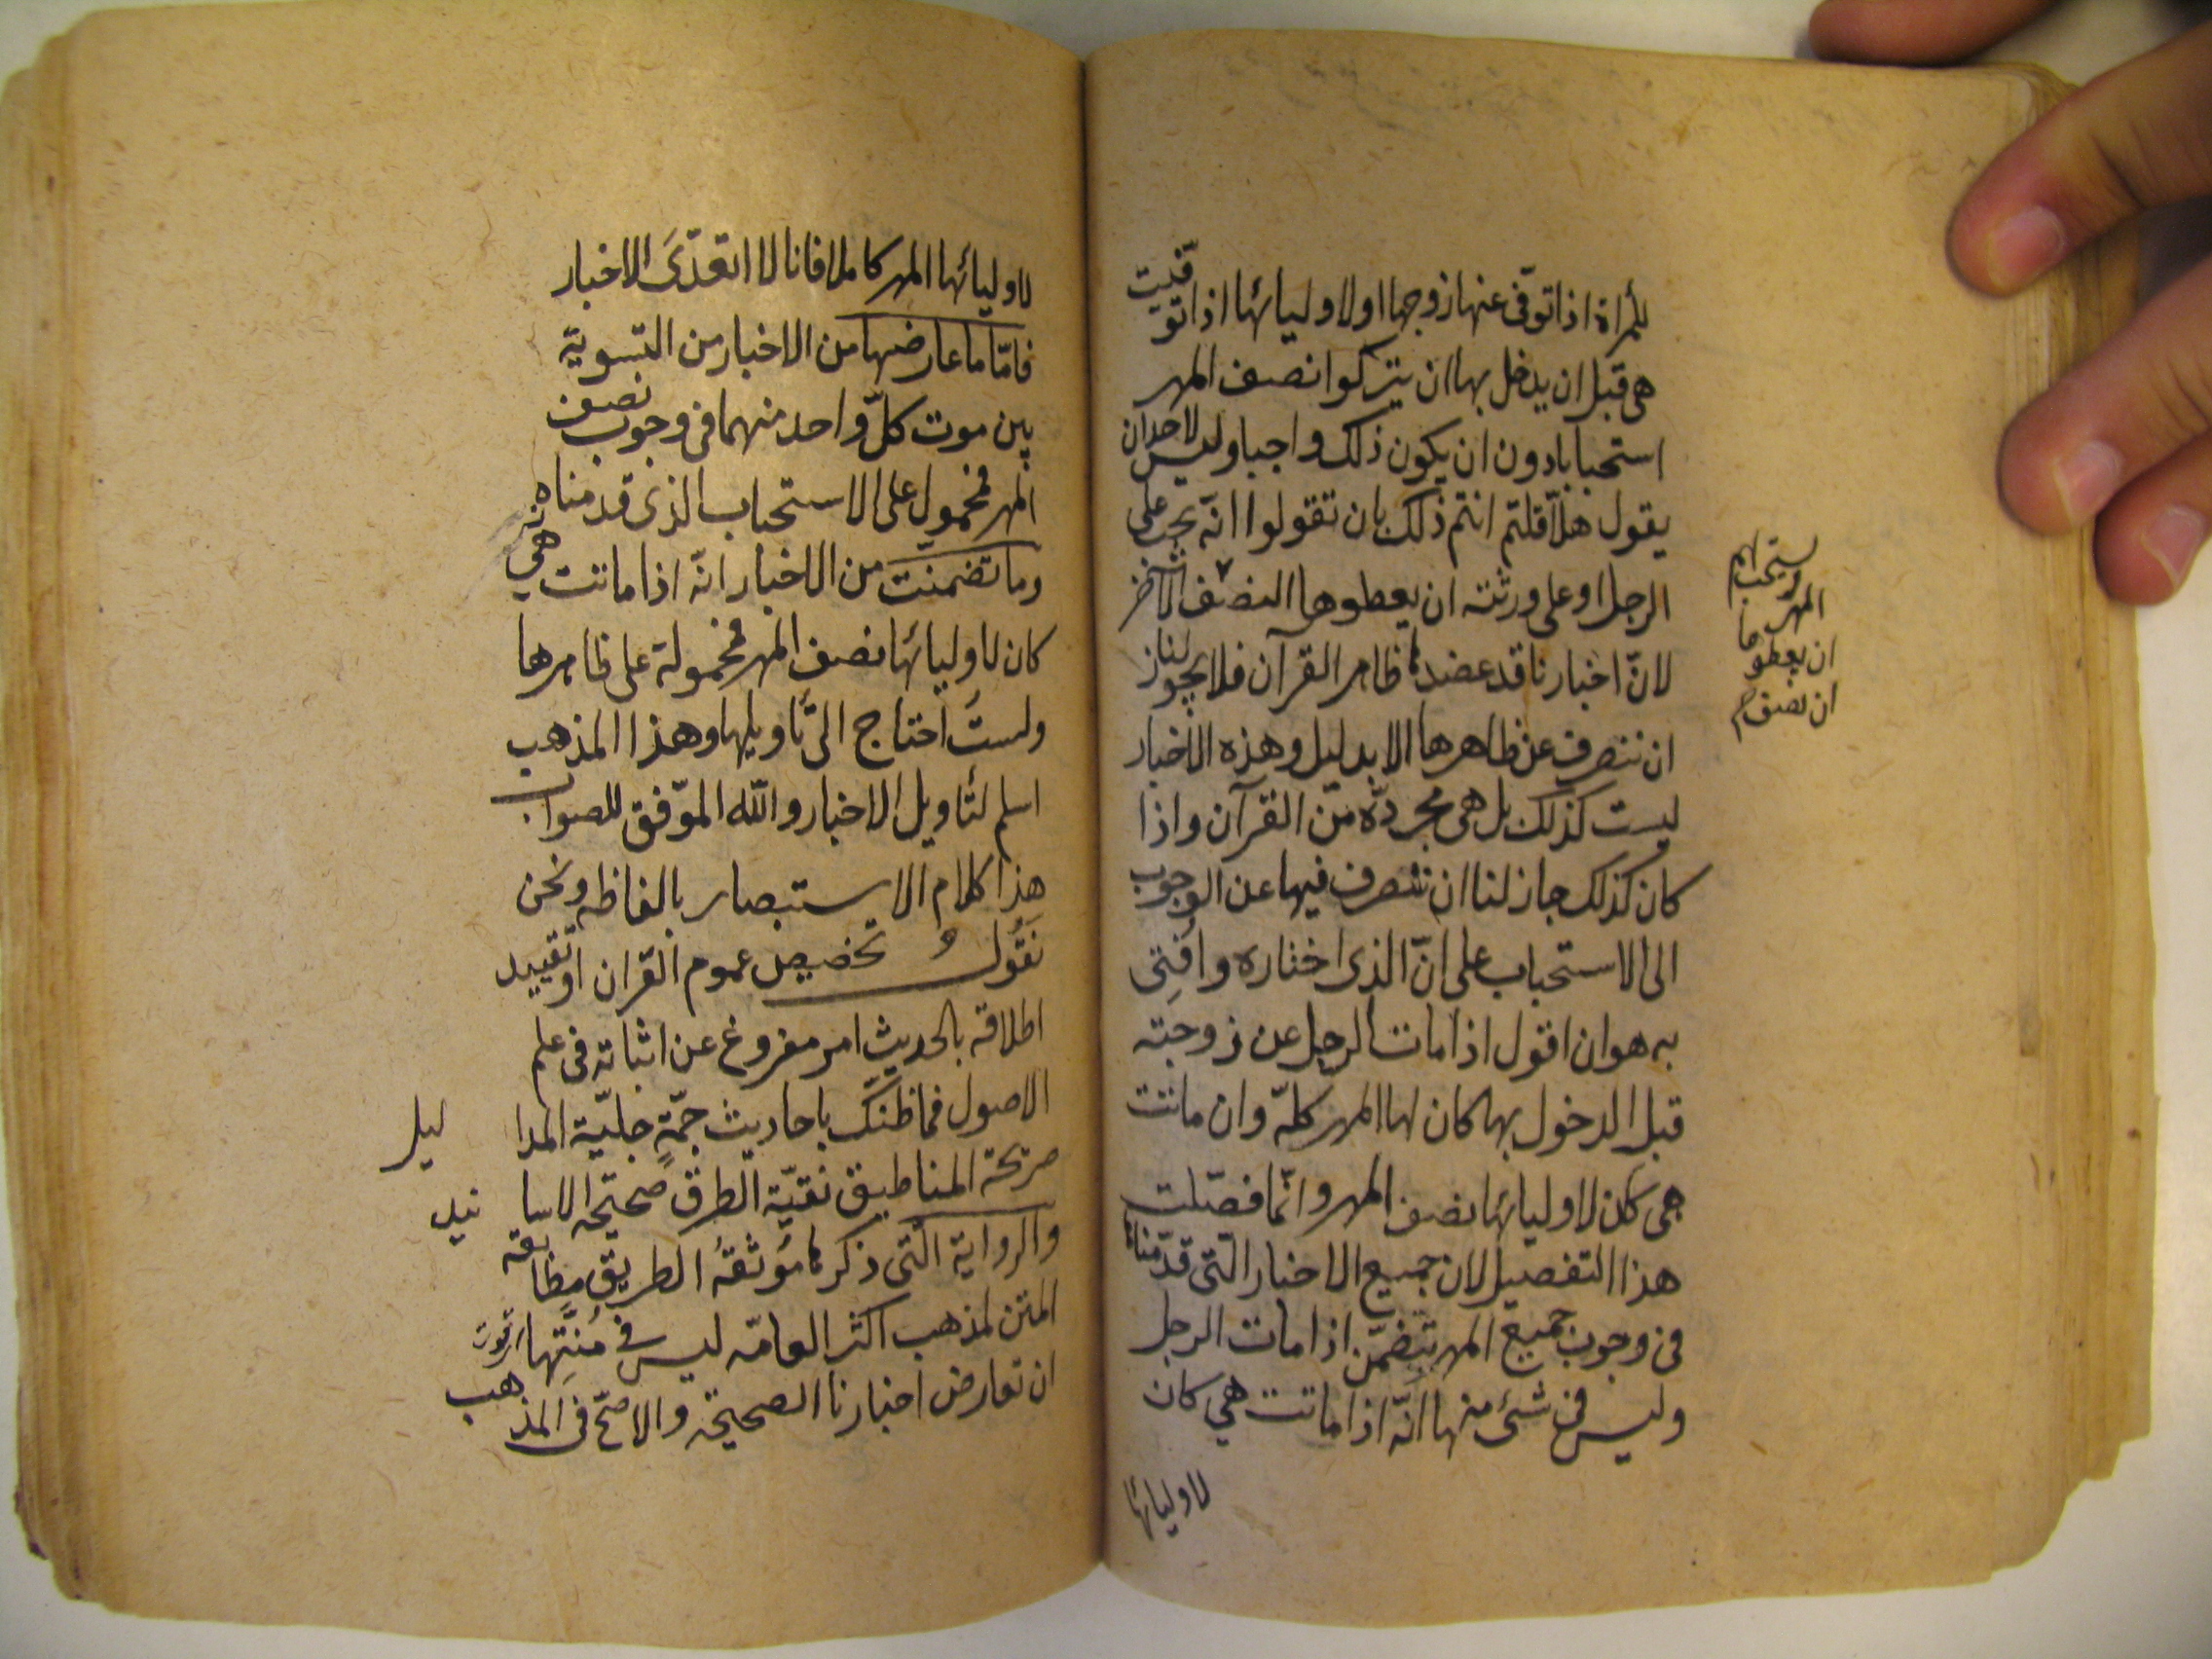 للمرأة اذا توفّى عنها زوجها او لاوليائها اذا توفّيت
هى قبل ان يدخل بها ان يتركوا نصف المهر
استحبابا دون ان يكون ذلك واجبا وليس لاحد ان
يقول هلّا قلتم انتم ذلك بان تقولوا انّه يجب على
الرجل او على ورثته ان يعطوها النصف الآخر
لانّ اخبارنا قد عضدها ظاهر القرآن فلا يجوز لنا
ان ننصرف عن ظاهرها الا بدليل وهذه الاخبار
ليست كذلك بل هى مجردّة من القرآن واذا
كان كذلك جاز لنا ان ننصرف فيها عن الوجوب
الى الاستحباب على انّ الذى اختاره وافتى
به هو ان اقول اذا مات الرجل عن زوجته
قبل الدخول بها كان لها المهر كلّه وان ماتت
هى كان لاوليائها نصف المهر وانّما فصّلت
هذا التفصيل لان جميع الاخبار الّتى قدّمناها
فى وجوب جميع المهر يتضمّن اذا مات الرجل
وليس فى شئ منها انّه اذا ماتت هي كان
لاوليائها
يستحب لهم
المهر
ان يعطوها
ان نصف
لاوليائها المهر كاملا فانا لا اتعدّى الاخبار
فامّا ما عارضها من الاخبار من التسوية
بين موت كلّ واحد منهما فى وجوب نصف
المهر فمحمول على الاستحباب الذى قدمناه
وما تضمنّت من الاخبار انّه اذا ماتت هي
كان لاوليائها نصف المهر فمحمولة على ظاهرها
ولست احتاج الى تأويلها وهذا المذهب
اسلم لتأويل الاخبار والله الموّفق للصواب
هذا كلام الاستبصار بالفاظه ونحن
نقول و تخصيص عموم القرآن او تقييد
اطلاقه بالحديث امر مفروغ عن اثباته فى علم
الاصول فما ظنّك باحاديث جمّةٍ جليّة المدا ليل
صريحة المناطيق نقيّة الطرق صحيحة الاسا نيد
والرواية الّتى ذكرها مؤثقة الطريق مطابقه
المتن لمذهب اكثر العامّه ليس في مُنّتِها قوت
ان تعارض اخبارنا الصحيحة والاصحّ فى المذهب